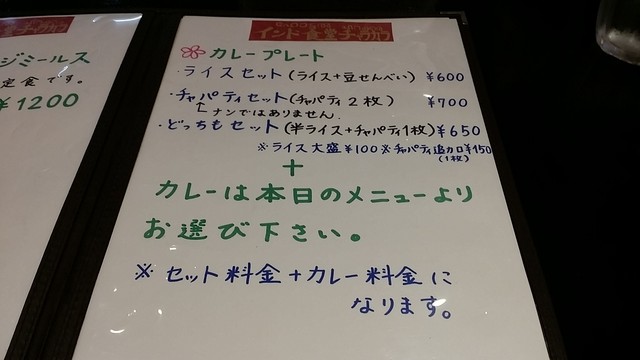 ジミールス
定食です。
¥1200
インド食堂チョウカ
カレープレート
・ライスセット(ライス+豆せんべい) ¥600
・チャパティセット(チャパティ2枚) ¥700
ナンではありません。
・どっちもセット(半ライス+チャパティ1枚) ¥650
※ライス大盛¥100 ※チャパティ追加¥150
(1枚)
+
カレーは本日のメニューより
お選び下さい。
※セット料金+カレー料金に
なります。